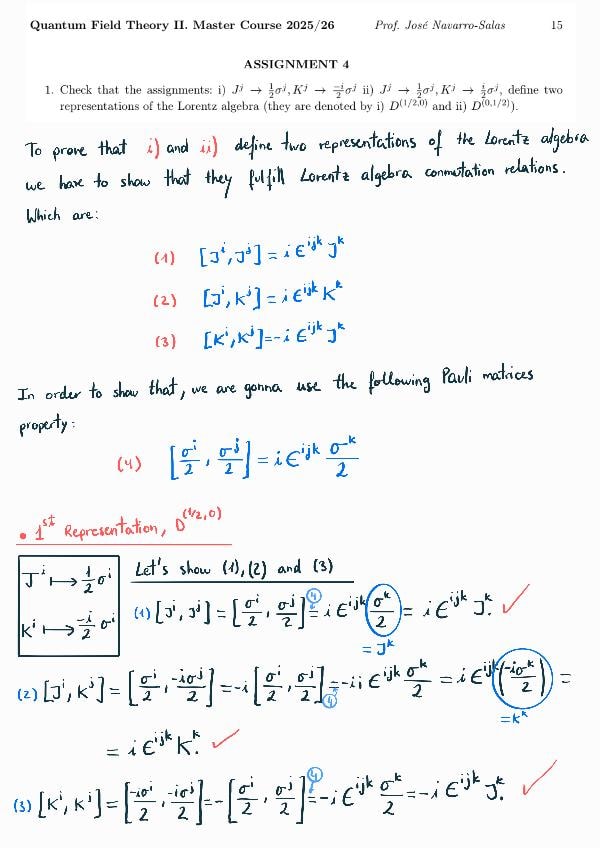 Quantum Field Theory II. Master Course 2025/26 Prof. José Navarro-Salas 15
ASSIGNMENT 4
1. Check that the assignments: i) J^j → 1/2 σ^j, K^j → -i/2 σ^j ii) J^j → 1/2 σ^j, K^j → i/2 σ^j, define two
representations of the Lorentz algebra (they are denoted by i) D^(1/2,0) and ii) D^(0,1/2)).
To prove that i) and ii) define two representations of the Lorentz algebra
we have to show that they fulfill Lorentz algebra conmutation relations.
Which are:
(1) [J^i, J^j] = i ϵ^ijk J^k
(2) [J^i, K^j] = i ϵ^ijk K^k
(3) [K^i, K^j] = -i ϵ^ijk J^k
In order to show that, we are gonna use the following Pauli matrices
property:
(4) [σ^i/2 , σ^j/2] = i ϵ^ijk σ^k/2
• 1st Representation, D^(1/2,0)
J^i ↦ 1/2 σ^i
K^i ↦ -i/2 σ^i
Let's show (1), (2) and (3)
(1) [J^i, J^j] = [σ^i/2 , σ^j/2] =④ i ϵ^ijk σ^k/2 = i ϵ^ijk J^k. ✓
= J^k
(2) [J^i, K^j] = [σ^i/2 , -iσ^j/2] = -i [σ^i/2 , σ^j/2] =④ -i i ϵ^ijk σ^k/2 = i ϵ^ijk (-iσ^k/2) =
= K^k
= i ϵ^ijk K^k. ✓
(3) [K^i, K^j] = [-iσ^i/2 , -iσ^j/2] = -[σ^i/2 , σ^j/2] =④ -i ϵ^ijk σ^k/2 = -i ϵ^ijk J^k. ✓